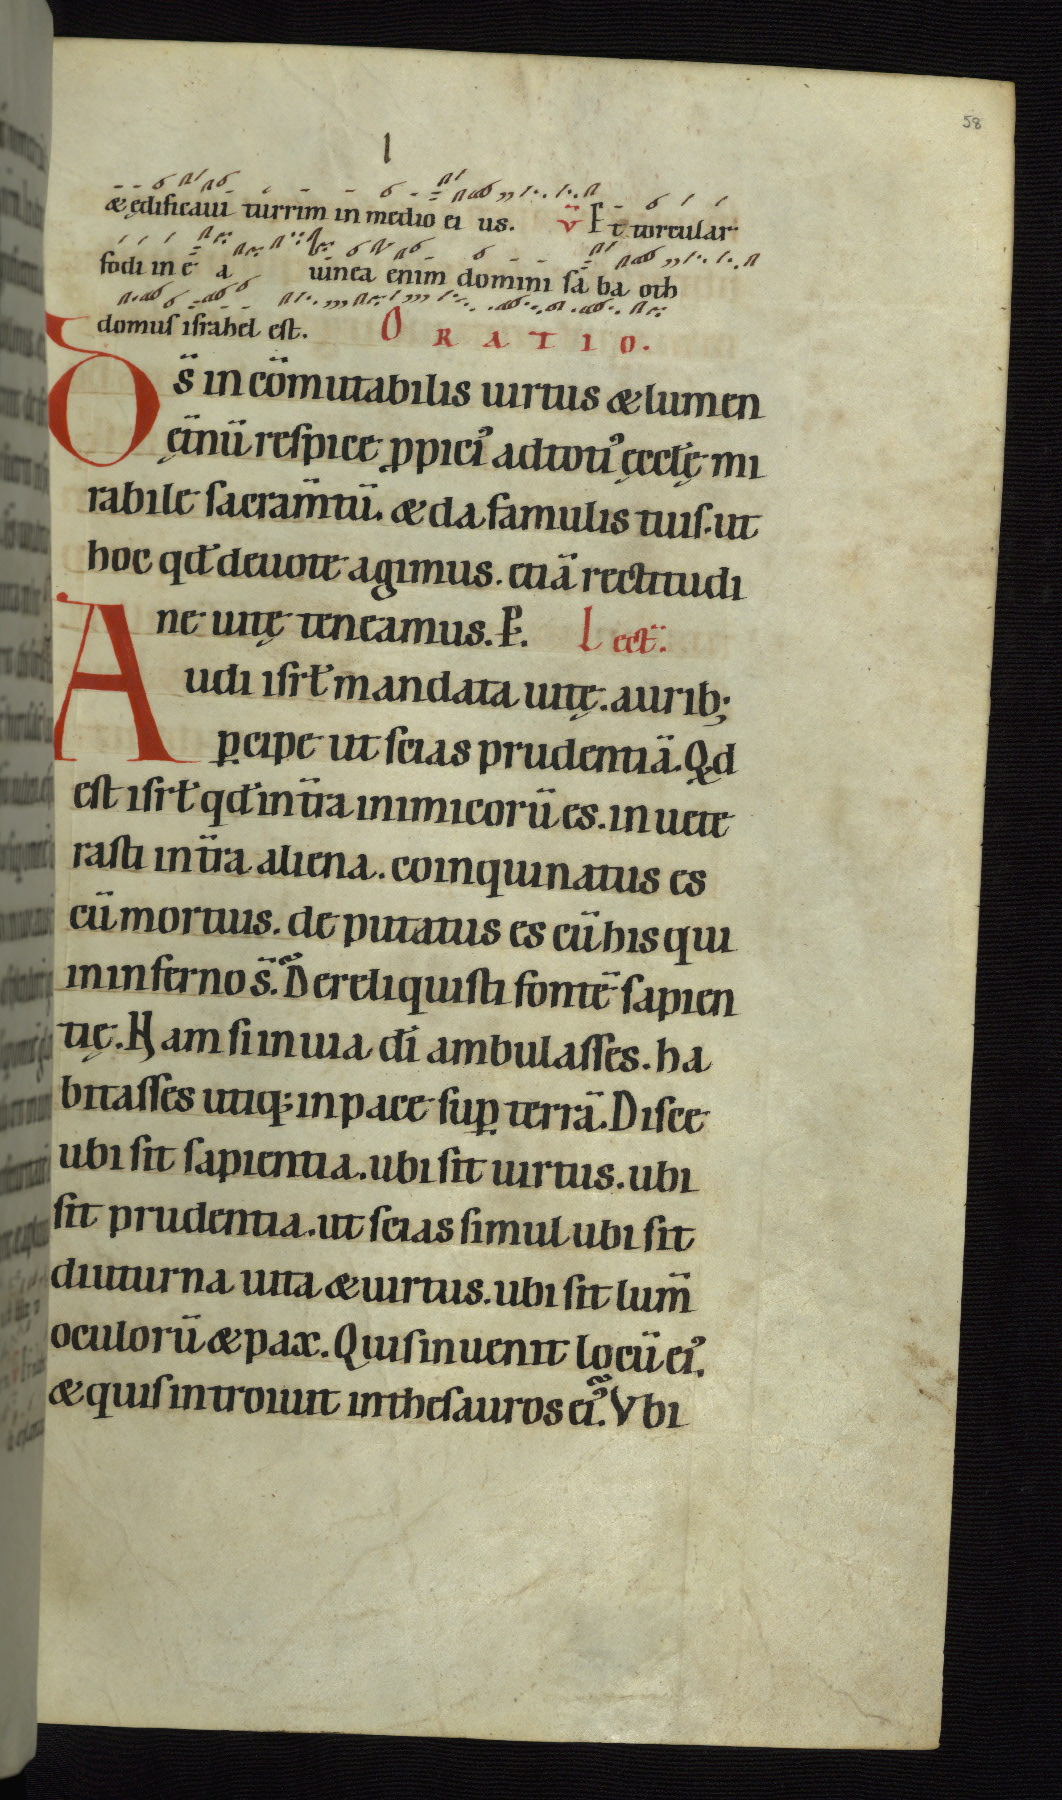 58
l
& ędificaui turrim in medio ei us. v̄ Et torcular
fodi in e a uinea enim domini sa ba oth
domus israhel est. ORATIO.
Ds̄ incōmutabilis uirtus & lumen
ęt̄nū respice ꝓpici᷒ ad toti᷒ ęcctę mi
rabile sacram̄tū. & da famulis tuis. ut
hoc qđ deuote agimus. etiā rectitudi
ne uitę teneamus. P. Lect̄.
Audi isrƚ mandata uitę. aurib;
ꝑcipe ut scias prudentiā. Qd
est isrƚ qđ in t̄ra inimicorū es. inuete
rasti in t̄ra aliena. coinquinatus es
cū mortuus. deputatus es cū his qui
in inferno s̄. Dereliquisti fontē sapien
tię. Nam si in uia dī ambulasses. ha
bitasses utiq; in pace suꝑ terrā. Disce
ubi sit sapientia. ubi sit uirtus. ubi
sit prudentia. ut scias simul ubi sit
diuturna uita & uirtus. ubi sit lum̄
oculorū & pax. Quis inuenit locū ei᷒.
& quis introiuit in thesauros ei᷒. Vbi